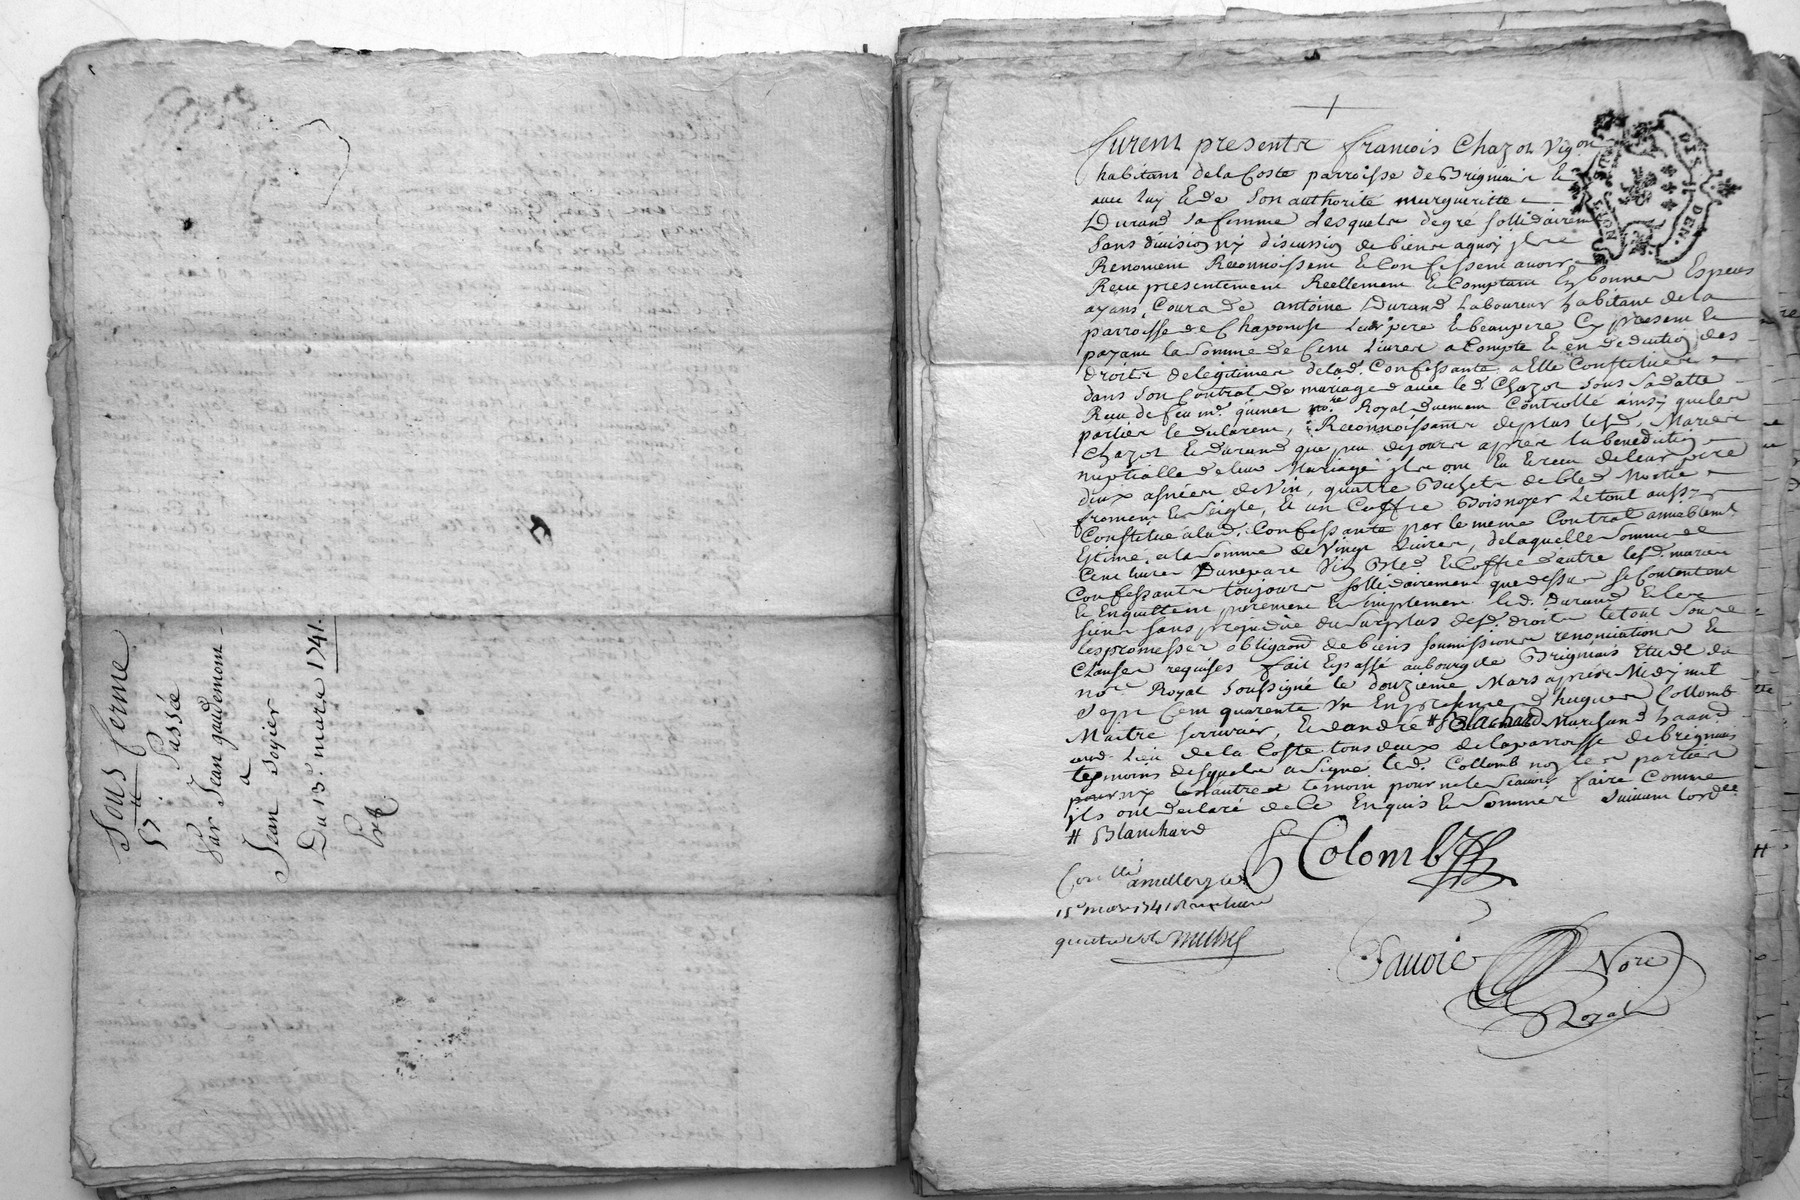 Sous ferme
5#
Passée
Par Jean gaudemont
a
Jean soyier
Du 13e. mars 1741.
Furent presents francois Chazot vigon
habitant de la Coste parroisse de Brignais et
avec luy et de son authorité margueritte
Durand sa femme Lesquels degré sollidairement
sans division ny discussion de biens aquoy ils
Renoncent Reconnoissent et Confessent avoir
Receu presentement Reellement et Comptant En bonnes Especes
ayans Cours de antoine Durand Laboureur habitant de la
parroisse de Chaponost Leur pere et beaupere Cy present et
payant la somme de Cent Livres a Compte et en deduction des
droits de legitimes de lad. Confessante a Elle Constitués
dans son Contrat de mariage avec led. Chazot sous sa datte
Receu de feu me. guinet nore. Royal duement Controllé ainsy que les
parties le declarent, Reconnoissants de plus lesd. Mariés
Chazot et durand que peu de jours apres la benediction
nuptialle de leur Mariage ils ont Eu et receu de leur pere
deux asnées de vin, quatre Bichets de bled Moitié
froment et seigle, et un Coffre Bois noyer le tout aussy
Constitué a lad. Confessante par le meme Contrat amiablemt.
Estimé a la somme de Vingt Livres, de laquelle somme de
Cent livres Dunepart Vin Bled et Coffre d'autre lesd. maries
Confessants toujours sollidairement que dessus se Contentent
et Enquittent purement et simplement led. Durand et les
siens sans prejudice du surplus desd. droits le tout sous
les promesses obligaons de biens soumissions renonciations et
Clauses requises fait et passé au bourg de Brignais Etude du
nore. Royal soussigné le douzieme Mars apres Midy mil
sept Cent quarente un En presence d'hugues Collomb
Maitre serrurier, et d'andré # Blachard Marchand haand.
aud. Lieu de la Coste tous deux de la parroisse de brignais
temoins desquels a signé led. Collomb non les parties
pour ny l'autre temoin pour ne le scavoir faire Comme
ils ont declaré de ce Enquis et sommés suivant lordce
# Blanchard
Colomb
Conllé a millery le
15e mars 1741 Receu
Favoie Nore
Royal